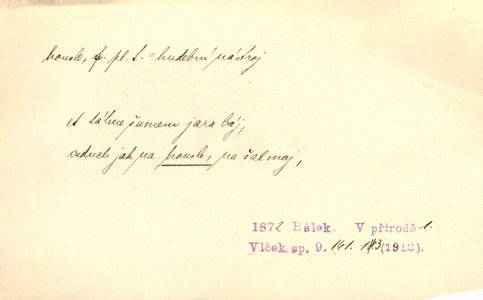 housle, f. pl. t. = hudební nástroj
a táhne šumem jara báj,
vzduch jak na housle, na šalmaj,
1872 Hálek. V přírodě 1.
Vlček, sp. 9. 141. (1912).